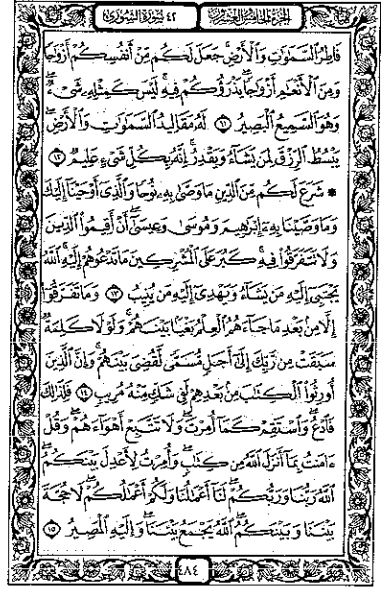 الجزء الخامس والعشرون
٤٢ سورة الشورى
فَاطِرُ ٱلسَّمَٰوَٰتِ وَٱلْأَرْضِۚ جَعَلَ لَكُم مِّنْ أَنفُسِكُمْ أَزْوَٰجًا
وَمِنَ ٱلْأَنْعَٰمِ أَزْوَٰجًاۖ يَذْرَؤُكُمْ فِيهِۚ لَيْسَ كَمِثْلِهِۦ شَىْءٌۖ
وَهُوَ ٱلسَّمِيعُ ٱلْبَصِيرُ ١١ لَهُۥ مَقَالِيدُ ٱلسَّمَٰوَٰتِ وَٱلْأَرْضِۖ
يَبْسُطُ ٱلرِّزْقَ لِمَن يَشَآءُ وَيَقْدِرُۚ إِنَّهُۥ بِكُلِّ شَىْءٍ عَلِيمٌ ١٢
۞ شَرَعَ لَكُم مِّنَ ٱلدِّينِ مَا وَصَّىٰ بِهِۦ نُوحًا وَٱلَّذِىٓ أَوْحَيْنَآ إِلَيْكَ
وَمَا وَصَّيْنَا بِهِۦٓ إِبْرَٰهِيمَ وَمُوسَىٰ وَعِيسَىٰٓۖ أَنْ أَقِيمُوا۟ ٱلدِّينَ
وَلَا تَتَفَرَّقُوا۟ فِيهِۚ كَبُرَ عَلَى ٱلْمُشْرِكِينَ مَا تَدْعُوهُمْ إِلَيْهِۚ ٱللَّهُ
يَجْتَبِىٓ إِلَيْهِ مَن يَشَآءُ وَيَهْدِىٓ إِلَيْهِ مَن يُنِيبُ ١٣ وَمَا تَفَرَّقُوٓا۟
إِلَّا مِنۢ بَعْدِ مَا جَآءَهُمُ ٱلْعِلْمُ بَغْيًۢا بَيْنَهُمْۚ وَلَوْلَا كَلِمَةٌ
سَبَقَتْ مِن رَّبِّكَ إِلَىٰٓ أَجَلٍ مُّسَمًّى لَّقُضِىَ بَيْنَهُمْۚ وَإِنَّ ٱلَّذِينَ
أُورِثُوا۟ ٱلْكِتَٰبَ مِنۢ بَعْدِهِمْ لَفِى شَكٍّ مِّنْهُ مُرِيبٍ ١٤ فَلِذَٰلِكَ
فَٱدْعُۖ وَٱسْتَقِمْ كَمَآ أُمِرْتَۖ وَلَا تَتَّبِعْ أَهْوَآءَهُمْۖ وَقُلْ
ءَامَنتُ بِمَآ أَنزَلَ ٱللَّهُ مِن كِتَٰبٍۖ وَأُمِرْتُ لِأَعْدِلَ بَيْنَكُمُۖ
ٱللَّهُ رَبُّنَا وَرَبُّكُمْۖ لَنَآ أَعْمَٰلُنَا وَلَكُمْ أَعْمَٰلُكُمْۖ لَا حُجَّةَ
بَيْنَنَا وَبَيْنَكُمُۖ ٱللَّهُ يَجْمَعُ بَيْنَنَاۖ وَإِلَيْهِ ٱلْمَصِيرُ ١٥
٤٨٤